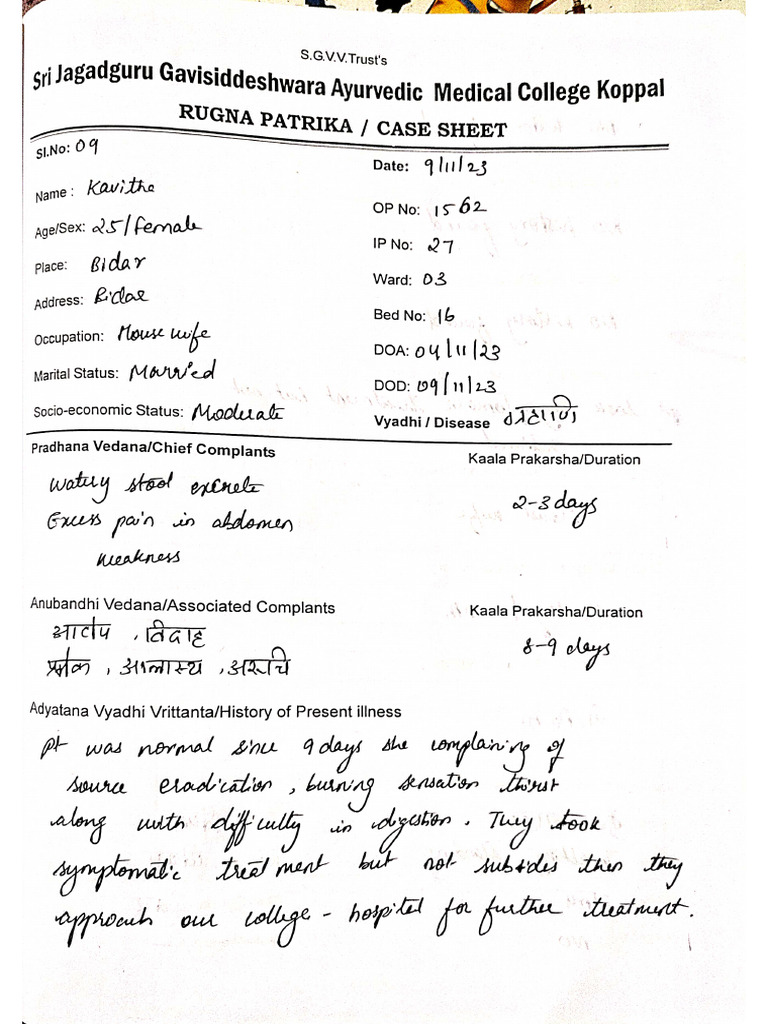 S.G.V.V.Trust's
Sri Jagadguru Gavisiddeshwara Ayurvedic Medical College Koppal
RUGNA PATRIKA / CASE SHEET
Sl.No: 09
Date: 9/11/23
Name : Kavitha
OP No: 1562
Age/Sex: 25/female
IP No: 27
Place: Bidar
Ward: 03
Address: Bidar
Bed No: 16
Occupation: House wife
DOA: 04/11/23
Marital Status: Married
DOD: 09/11/23
Socio-economic Status: Moderate
Vyadhi / Disease ग्रहाणि
Pradhana Vedana/Chief Complants
Kaala Prakarsha/Duration
watery stool excrete
2-3 days
Excess pain in abdomen
weakness
Anubandhi Vedana/Associated Complants
Kaala Prakarsha/Duration
आटोप , विदाह
8-9 days
, आलास्य , अरुचि
Adyatana Vyadhi Vrittanta/History of Present illness
pt was normal since 9 days she complaining of
source eradication , burning sensation thirst
along with difficulty in digestion. They took
symptomatic treatment but not subsides then they
approach our college - hospital for further treatment.